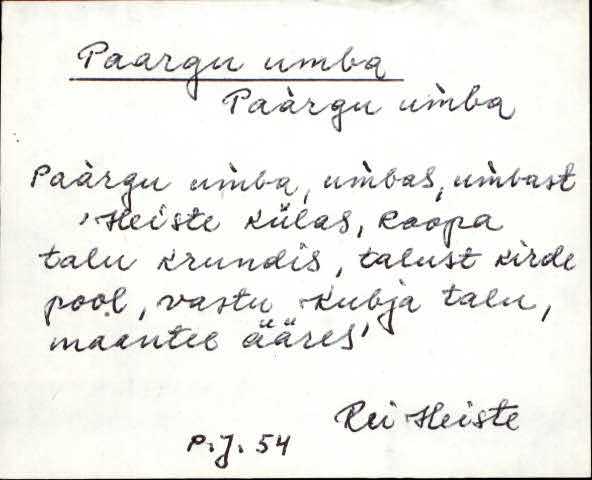 Paargu umba
Paàrgu um̀ba
Paàrgu um̀ba, um̀bas, um̀bast
'Heiste külas, Koopa
talu krundis, talust kirde
pool, vastu Kubja talu,
maantee ääres'
Rei Heiste
P.J. 54